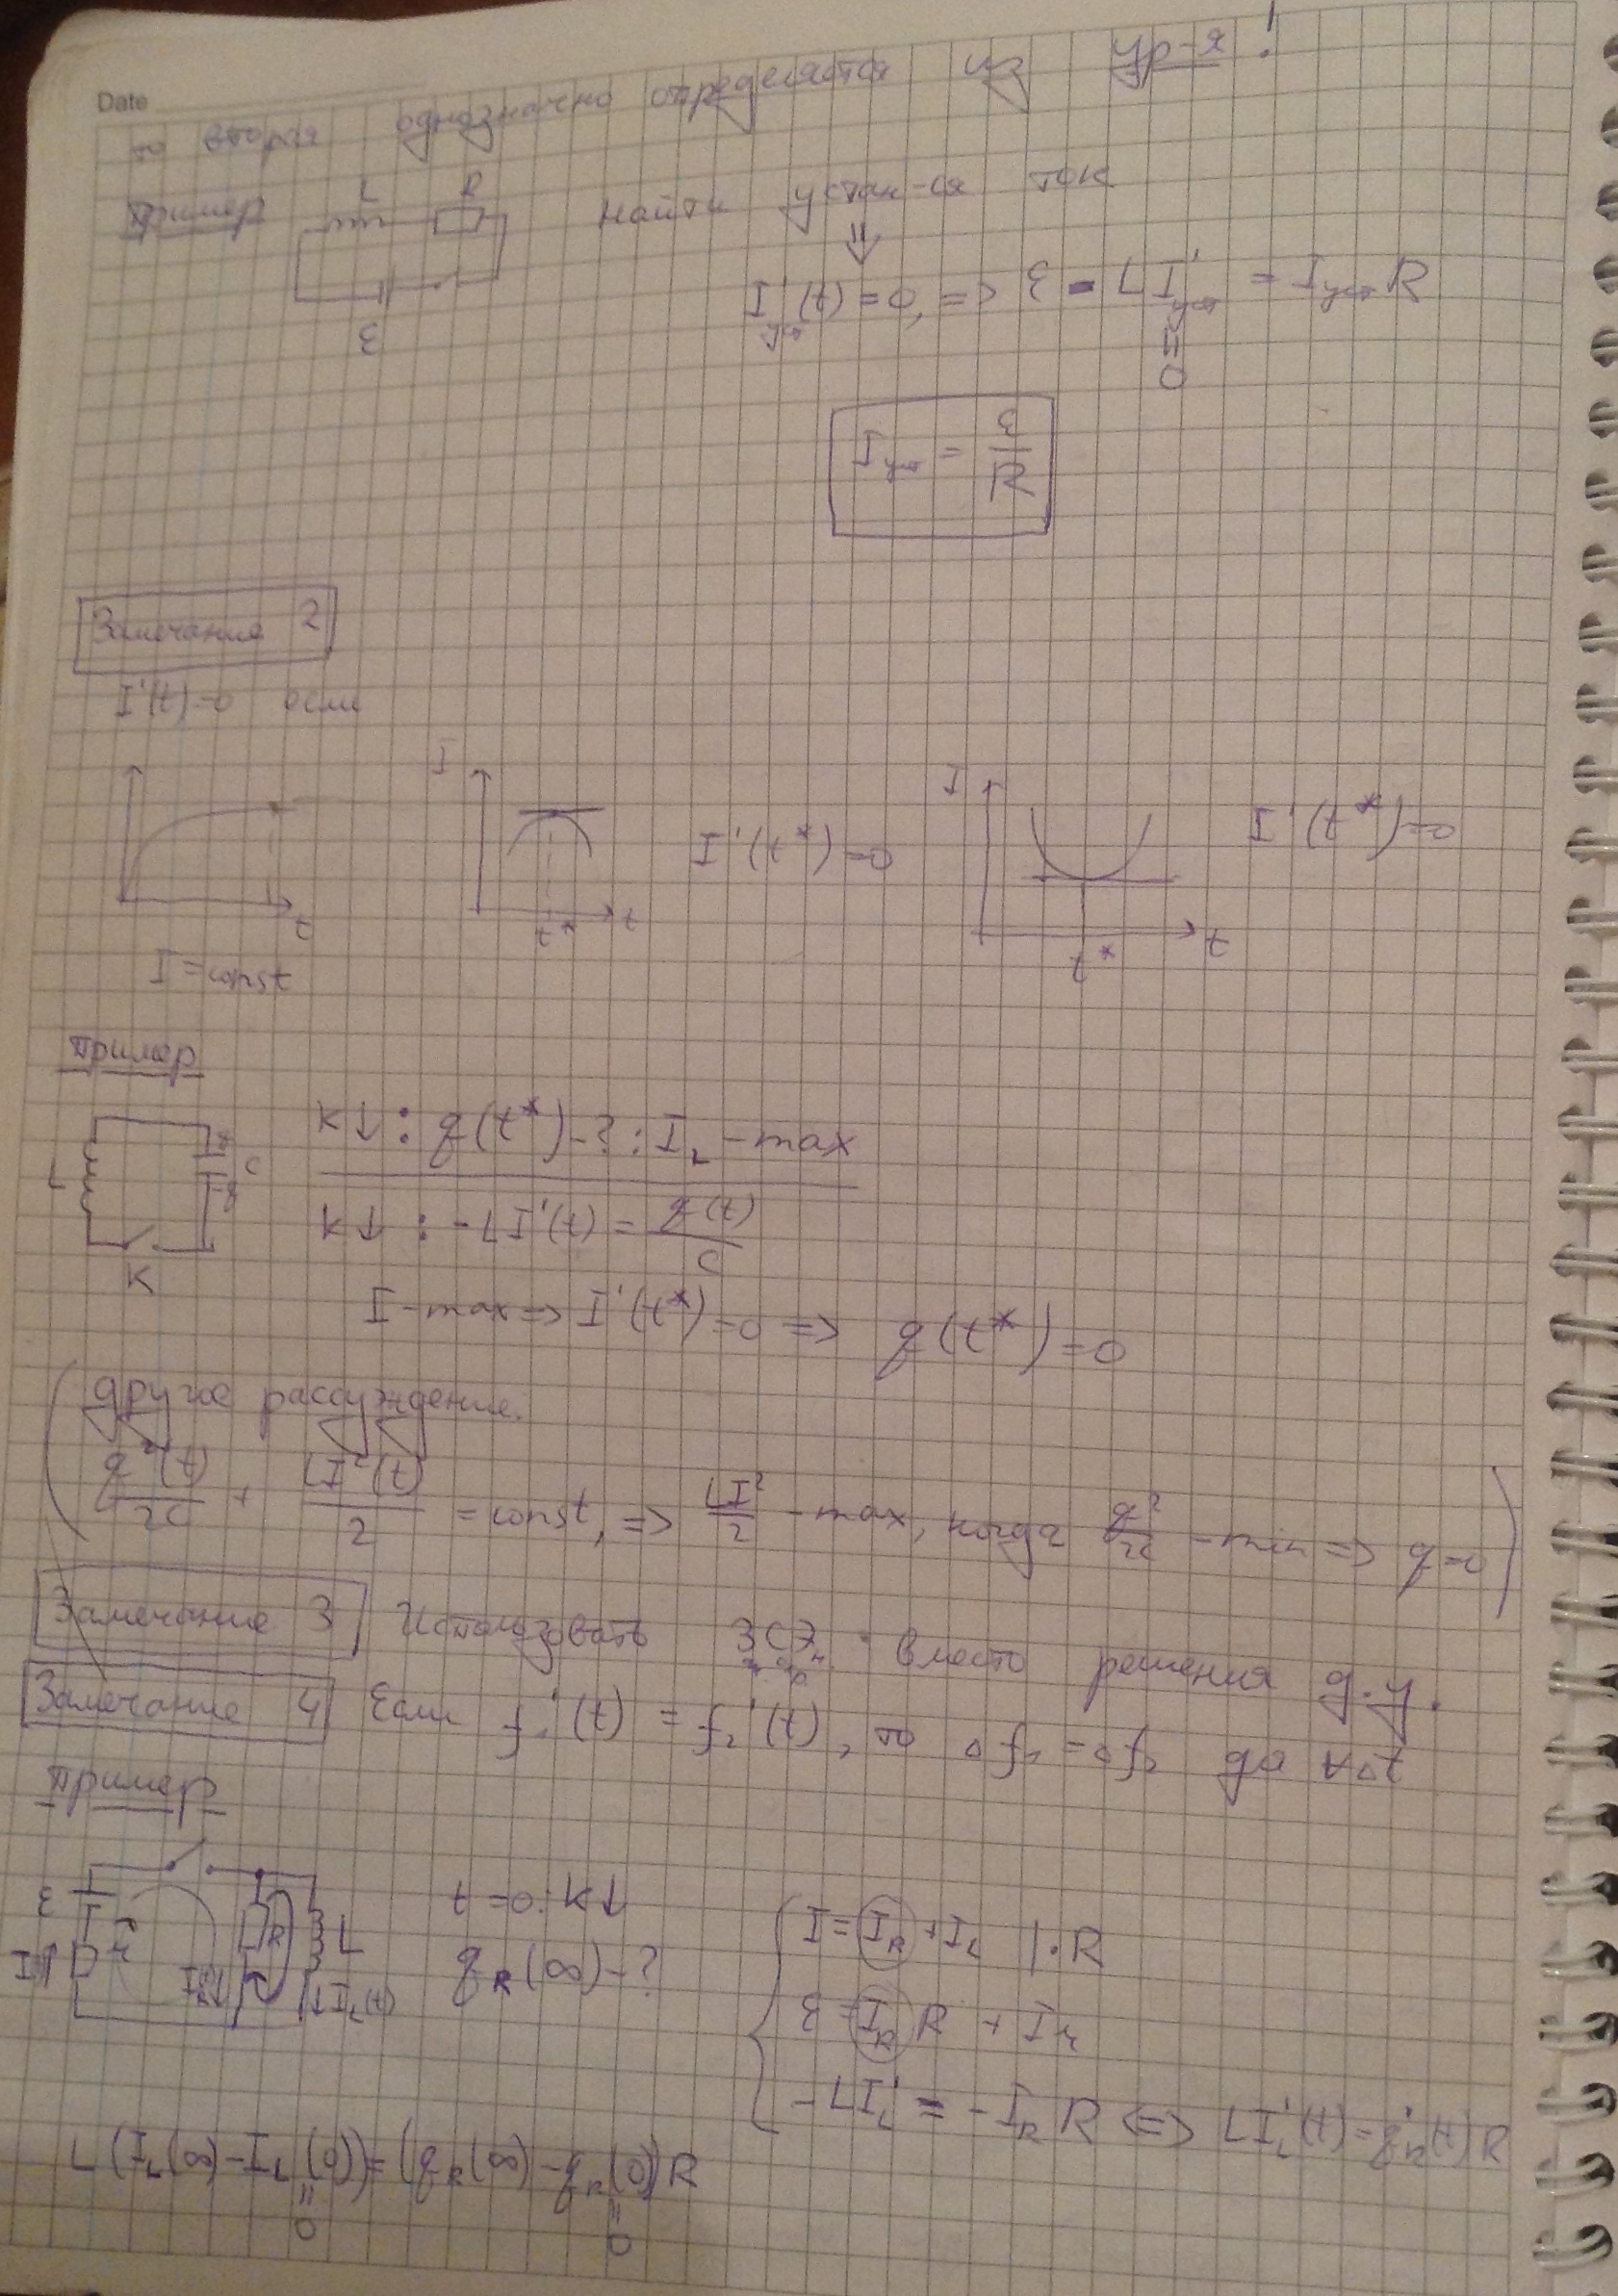 Date
то вторая однозначно определяется из ур-я!
Пример L R ℰ найти устан-ся ток
⇓
I'уст(t)=0, => ℰ - LI'уст = IустR
=0
Iуст = ℰ/R
Замечание 2
I'(t)=0 если
t I t* t I'(t*)=0 I t* t I'(t*)=0
I=const
Пример
L C q -q K
K↓: q(t*)-?: I_L-max
K↓: -LI'(t) = q(t)/C
I-max => I'(t*)=0 => q(t*)=0
(Другое рассуждение.
q²(t)/2C + LI²(t)/2 = const, => LI²/2 - max, когда q²/2C - min => q=0)
Замечание 3 Использовать ЗСЭ вместо решения д.у.
Замечание 4 Если f₁'(t) = f₂'(t), то Δf₁=Δf₂ до ∀Δt
Пример
ℰ r I R I_R L I_L(t)
t=0: K↓
q_R(∞)-?
I=I_R+I_L |·R
ℰ=I_R R + Ir
-LI_L' = -I_R R <=> LI_L'(t)=q_R'(t)R
L(I_L(∞)-I_L(0))=(q_R(∞)-q_R(0))R
=0 =0